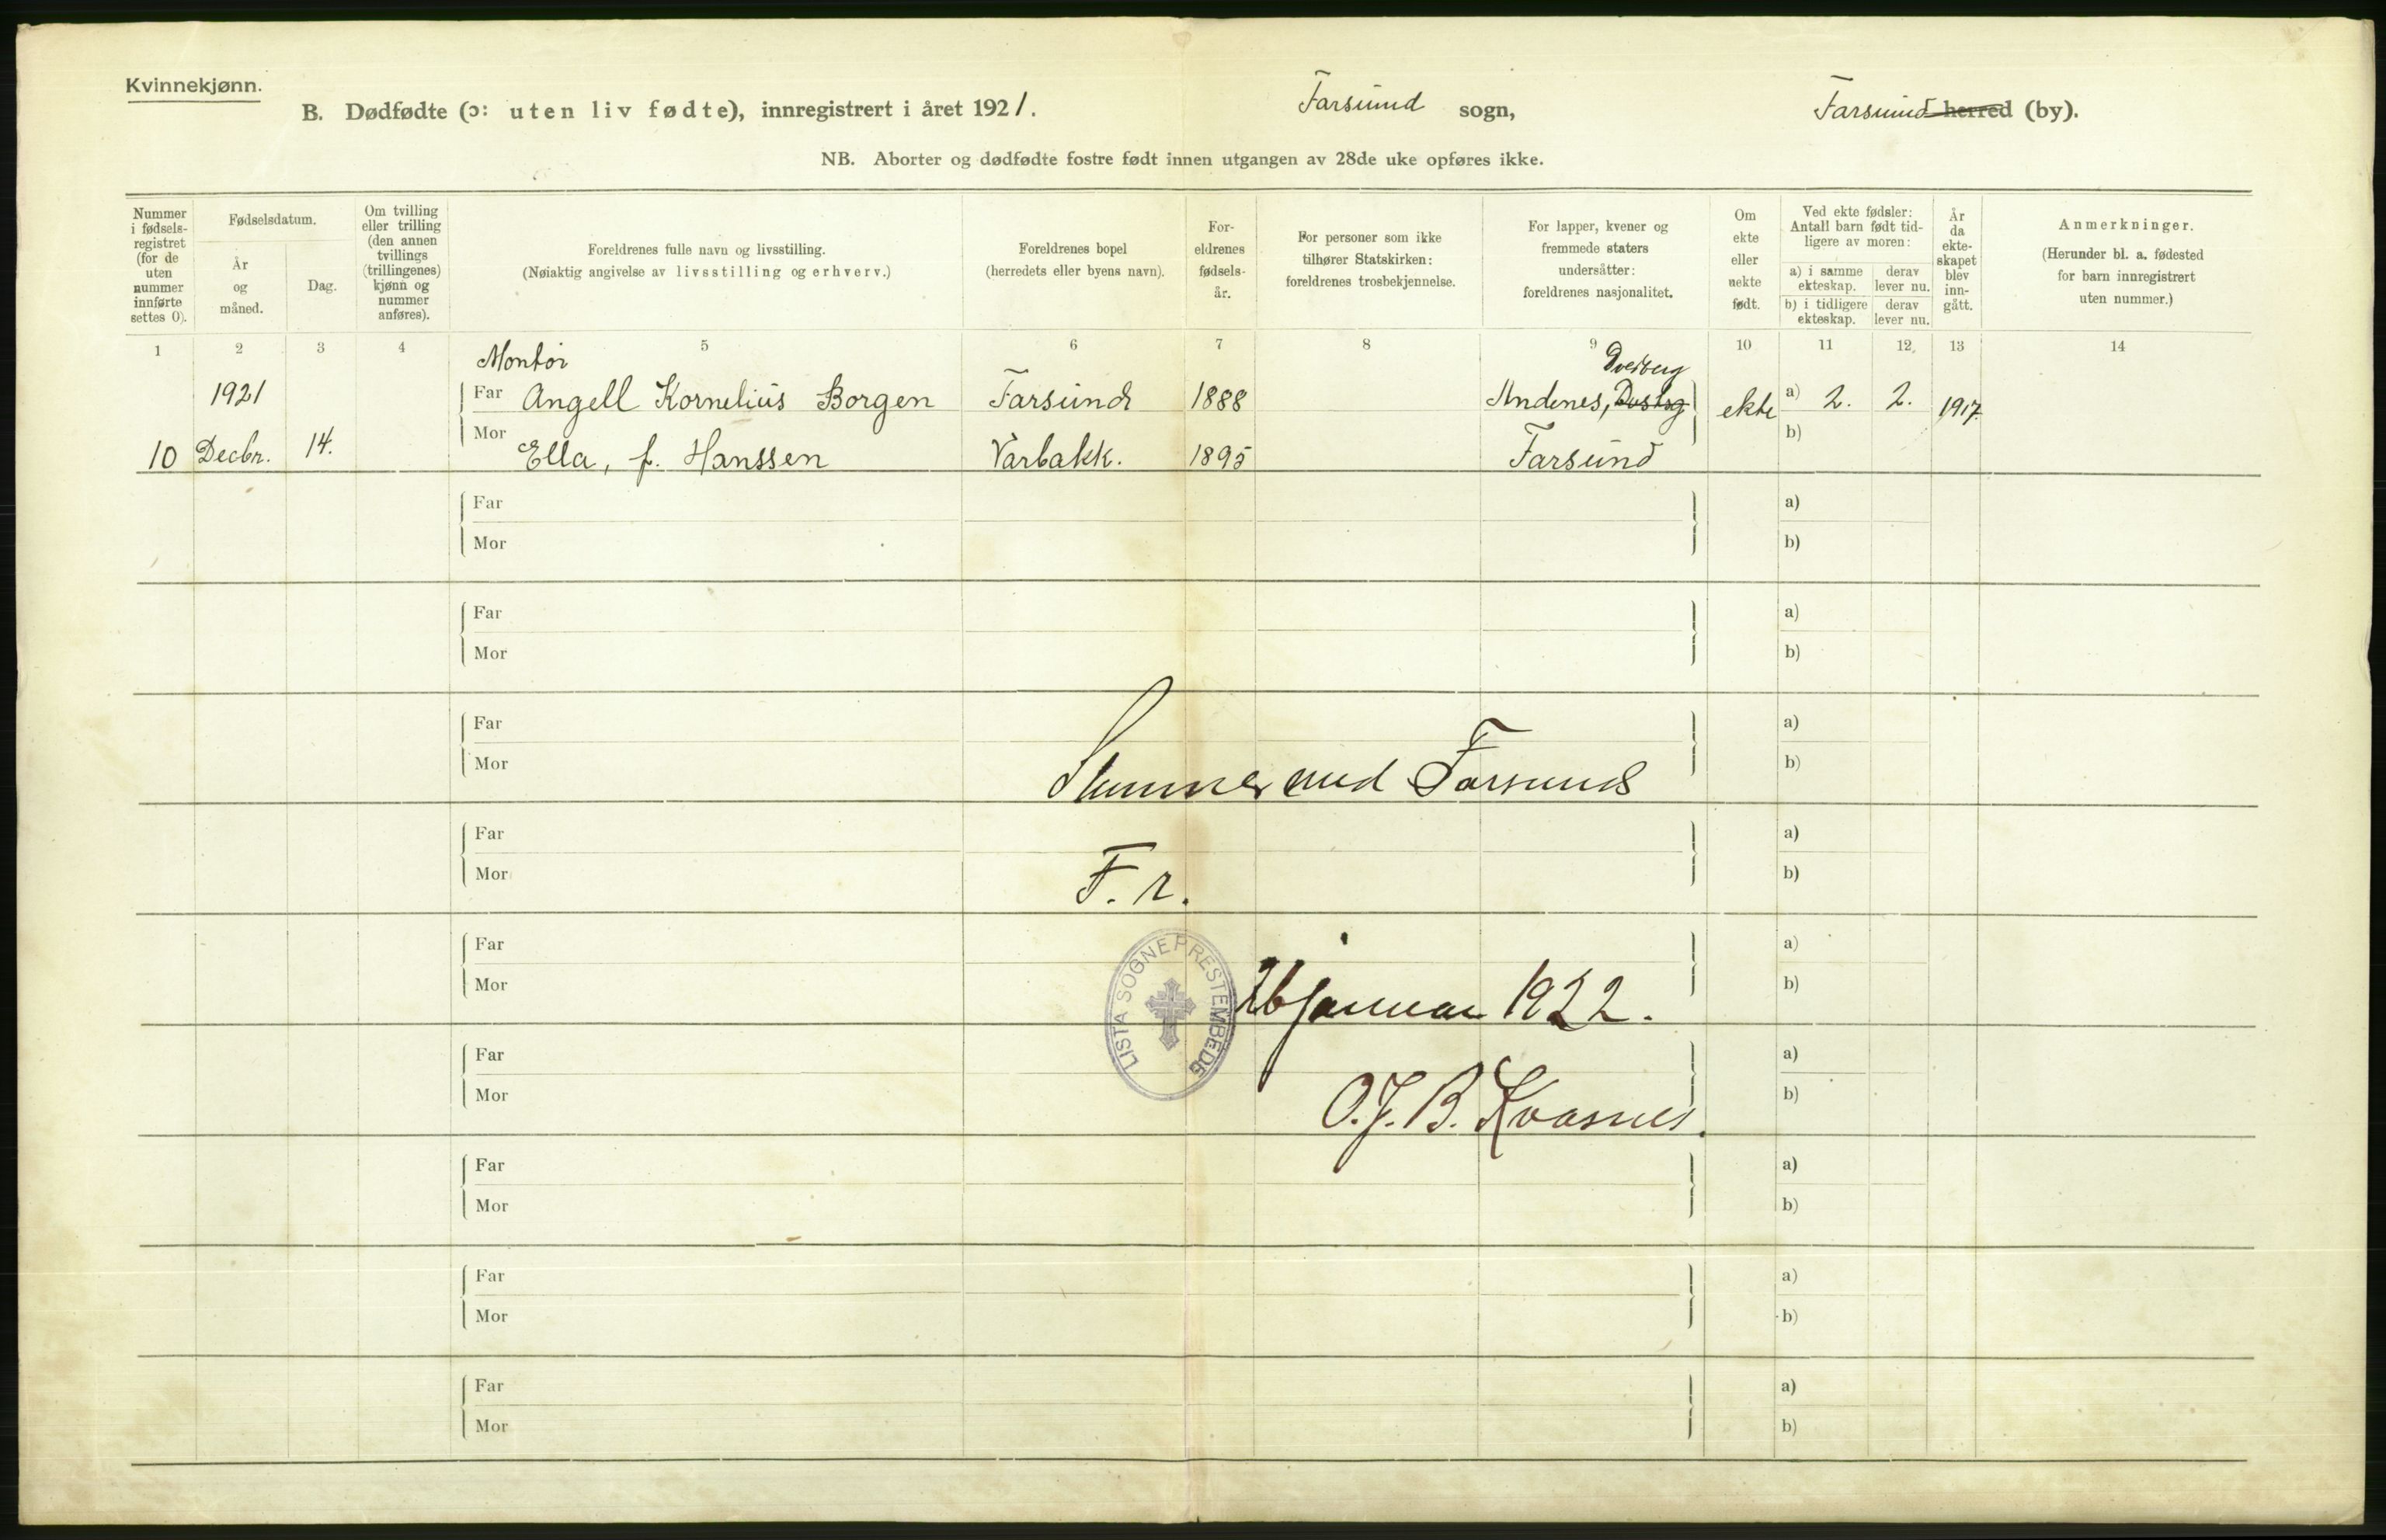 Kvinnekjønn.
B. Dødfødte (ɔ: uten liv fødte), innregistrert i året 1921. Farsund sogn, Farsund herred (by).
NB. Aborter og dødfødte fostre født innen utgangen av 28de uke opføres ikke.
Nummer i fødsels-registret (for de uten nummer innførte settes 0).
Fødselsdatum.
År og måned.
Dag.
Om tvilling eller trilling (den annen tvillings (trillingenes) kjønn og nummer anføres).
Foreldrenes fulle navn og livsstilling.
(Nøiaktig angivelse av livsstilling og erhverv.)
Foreldrenes bopel
(herredets eller byens navn).
For-eldrenes fødsels-år.
For personer som ikke tilhører Statskirken: foreldrenes trosbekjennelse.
For lapper, kvener og fremmede staters undersåtter: foreldrenes nasjonalitet.
Om ekte eller uekte født.
Ved ekte fødsler: Antall barn født tid-ligere av moren:
a) i samme ekteskap.
derav lever nu.
b) i tidligere ekteskap.
derav lever nu.
År da ekte-skapet blev inn-gått.
Anmerkninger.
(Herunder bl. a. fødested for barn innregistrert uten nummer.)
1 2 3 4 5 6 7 8 9 10 11 12 13 14
Montør Dverberg
1921 Far Angell Kornelius Borgen Farsund 1888 Andenes, ekte a) 2. 2. 1917.
10 Decbr. 14. Mor Ella, f. Hanssen Varbakk. 1895 Farsund b)
Far a)
Mor b)
Far a)
Mor b)
Far a)
Mor Stemmer med Farsunds b)
Far a)
Mor F. r. b)
Far a)
Mor 26 januar 1922. b)
LISTA SOGNEPRESTEMBEDE
Far a)
Mor O.J.B. Kvasnes. b)
Far a)
Mor b)
Far a)
Mor b)
Far a)
Mor b)